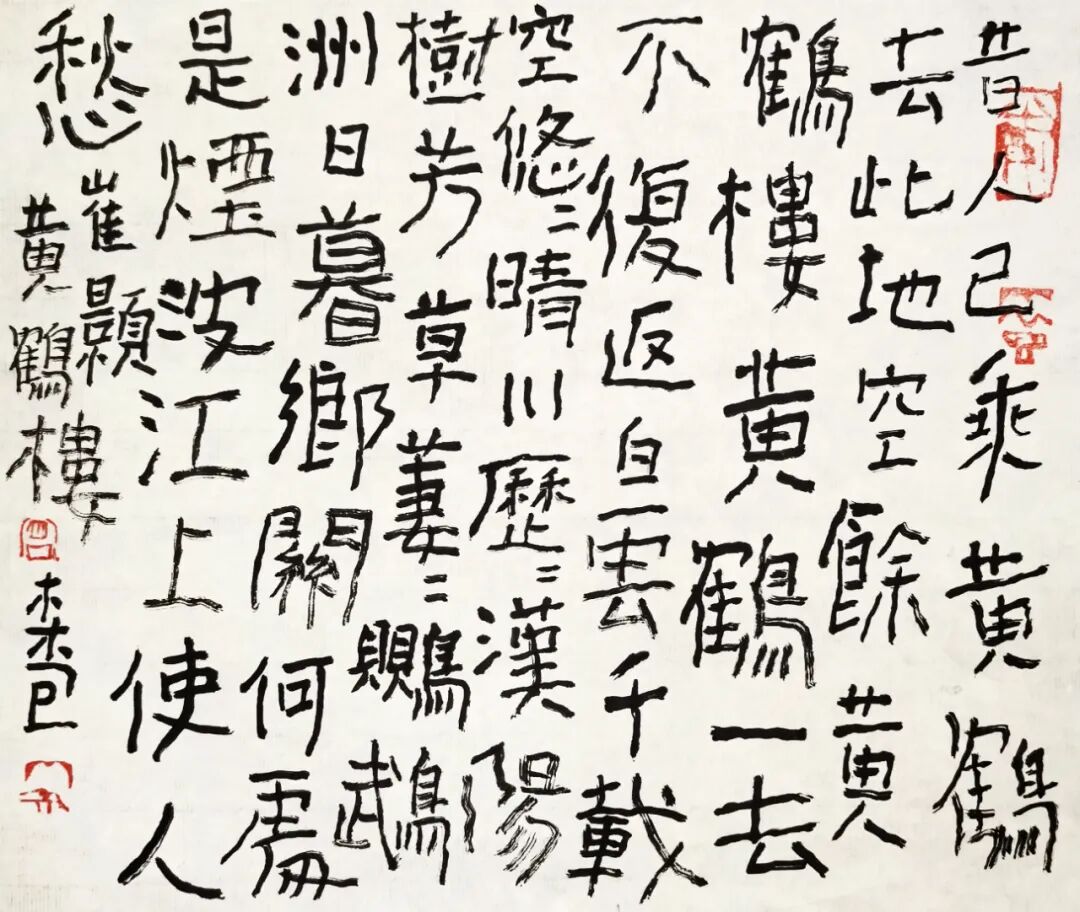 昔人已乘黃鶴
去此地空餘黃
鶴樓黃鶴一去
不復返白雲千載
空悠〻晴川歷〻漢陽
樹芳草萋〻鸚鵡
洲日暮鄉關何處
是煙波江上使人
愁
崔顥
黃鶴樓